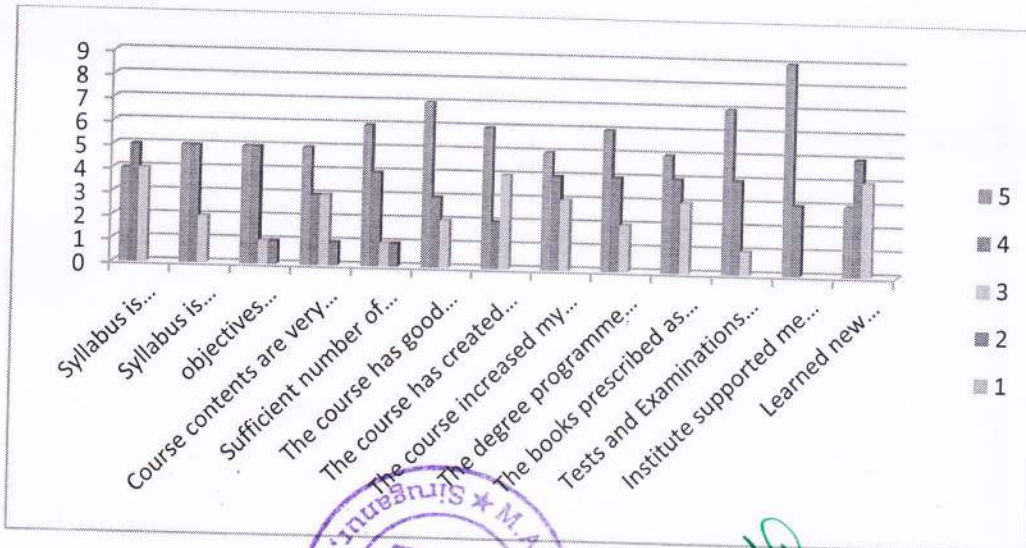 9
8
7
6
5
4
3
2
1
0
Syllabus is...
Syllabus is...
objectives...
Course contents are very...
Sufficient number of...
The course has good...
The course has created...
The course increased my...
The degree programme...
The books prescribed as...
Tests and Examinations...
Institute supported me...
Learned new...
5
4
3
2
1
Siruganur, ★ M.A